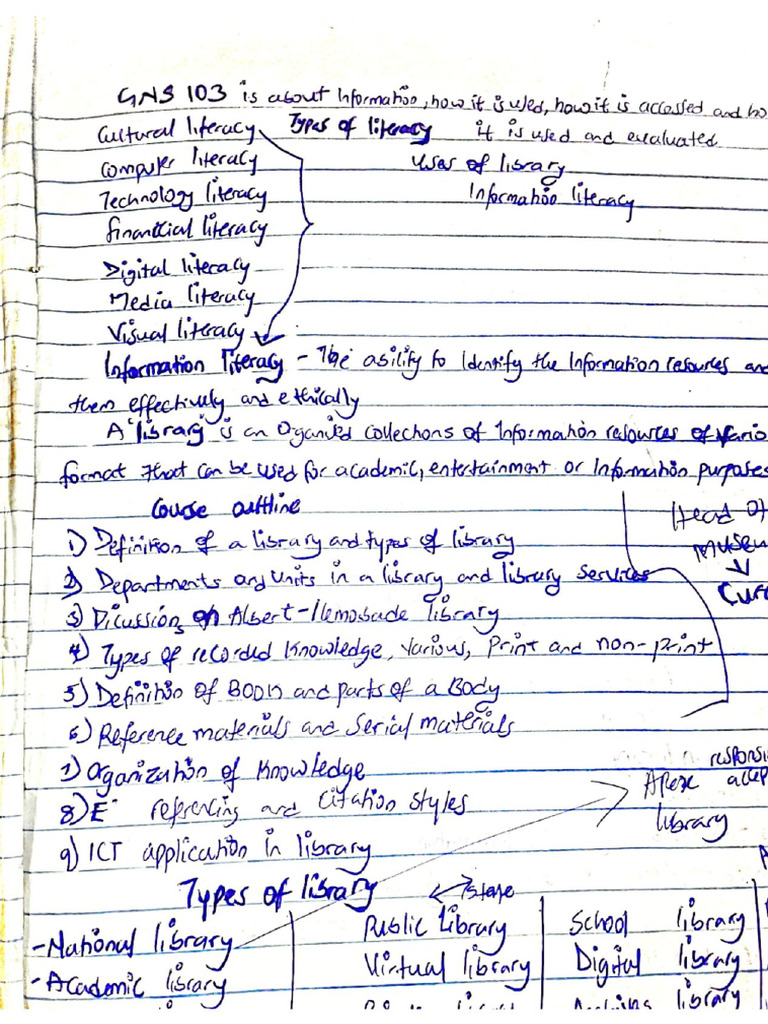 GNS 103 is about Information, how it is used, how it is accessed and
Cultural literacy Types of literacy it is used and evaluated
Computer literacy Uses of library
Technology literacy Information literacy
financial literacy
Digital literacy
Media literacy
Visual literacy
Information literacy - The ability to Identify the Information resources and
them effectively and ethically
A "library" is an Organised collections of Information resources of
format that can be used for academic, entertainment or Information purposes
Course outline
Head of
1) Definition of a library and types of library
2) Departments and units in a library and library services
3) Dicussion on Albert-Ilemobade library
4) Types of recorded Knowledge, Various, Print and non-print
5) Definition of Book and parts of a Body
6) Reference materials and Serial materials
7) Organization of Knowledge
8) E referencing and Citation styles
Apex
library
9) ICT application in library
Types of library
State
- National library Public Library School library
- Academic library Virtual library Digital library